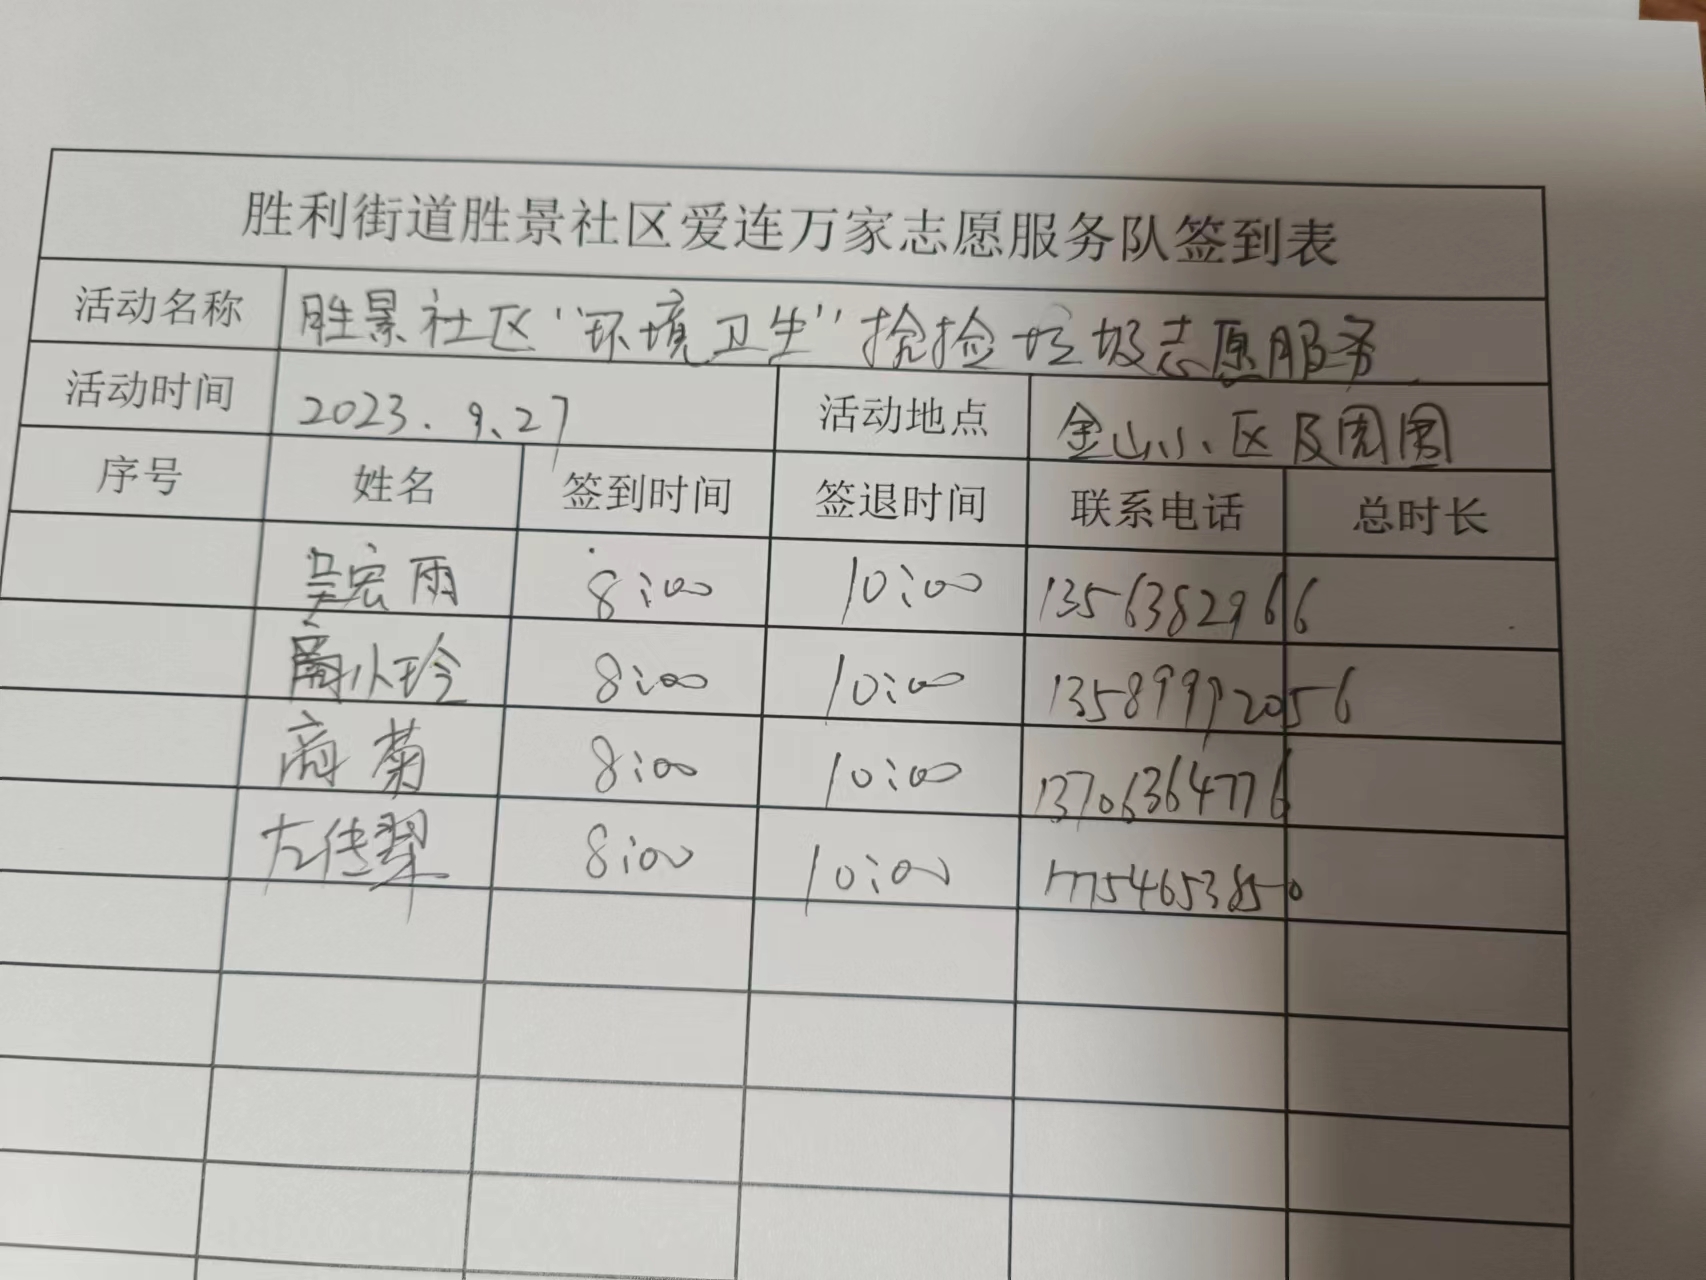 胜利街道胜景社区爱连万家志愿服务队签到表
活动名称 胜景社区“环境卫生”捡捡垃圾志愿服务
活动时间 2023.9.27 活动地点 金山小区及周围
序号 姓名 签到时间 签退时间 联系电话 总时长
吴宏雨 8:00 10:00 13563829666
8:00 10:00 13589992056
商菊 8:00 10:00 13706364776
左传翠 8:00 10:00 17754653850